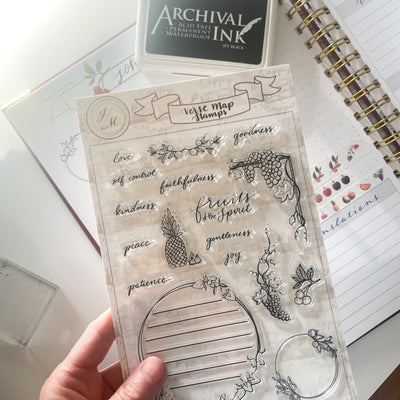 ARCHIVAL
INK
ACID FREE
PERMANENT
WATERPROOF
JET BLACK
Verse Map
Stamps
love
goodness
self-control
faithfulness
kindness
fruits
of the Spirit
peace
gentleness
joy
patience